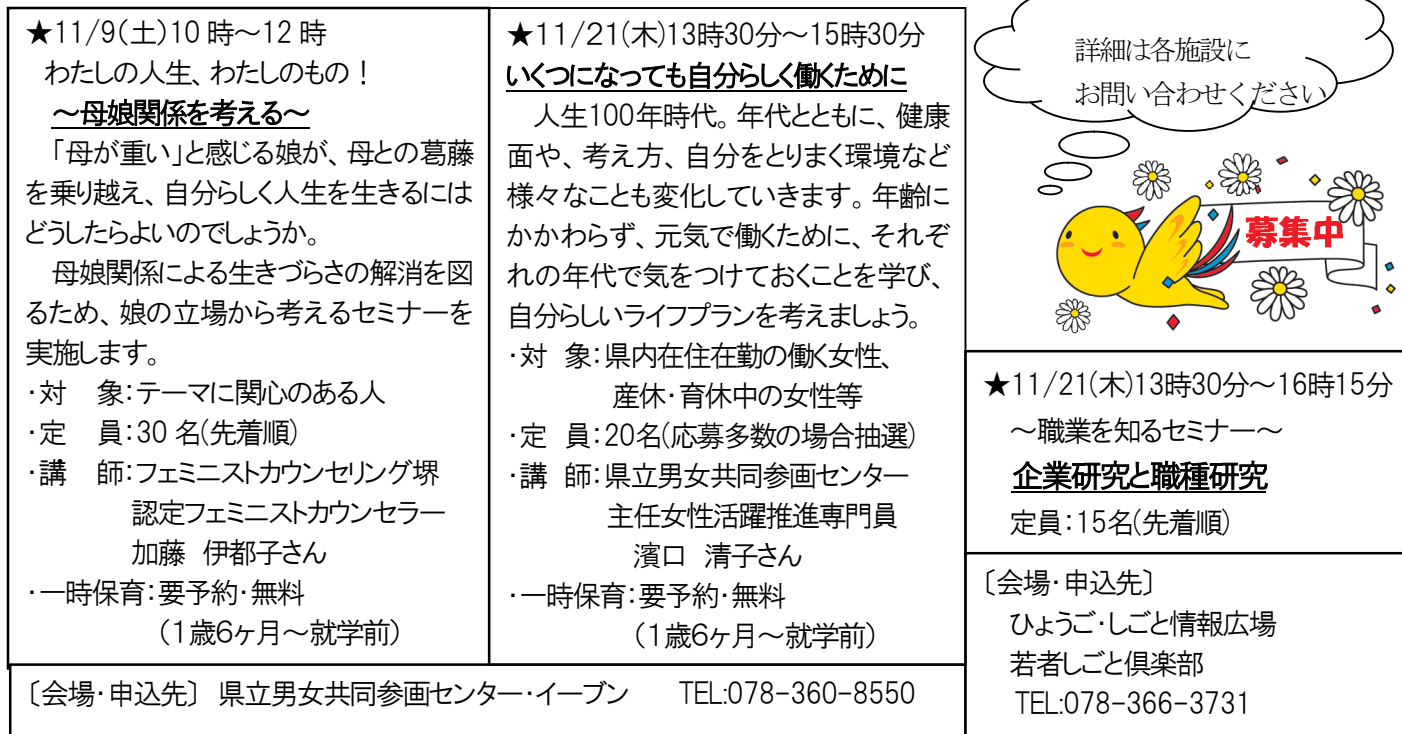 ★11/9(土)10時～12時
わたしの人生、わたしのもの！
～母娘関係を考える～
「母が重い」と感じる娘が、母との葛藤
を乗り越え、自分らしく人生を生きるには
どうしたらよいのでしょうか。
母娘関係による生きづらさの解消を図
るため、娘の立場から考えるセミナーを
実施します。
・対　象：テーマに関心のある人
・定　員：30名(先着順)
・講　師：フェミニストカウンセリング堺
認定フェミニストカウンセラー
加藤 伊都子さん
・一時保育：要予約・無料
（1歳6ヶ月～就学前）
★11/21(木)13時30分～15時30分
いくつになっても自分らしく働くために
人生100年時代。年代とともに、健康
面や、考え方、自分をとりまく環境など
様々なことも変化していきます。年齢に
かかわらず、元気で働くために、それぞ
れの年代で気をつけておくことを学び、
自分らしいライフプランを考えましょう。
・対　象：県内在住在勤の働く女性、
産休・育休中の女性等
・定　員：20名(応募多数の場合抽選)
・講　師：県立男女共同参画センター
主任女性活躍推進専門員
濱口 清子さん
・一時保育：要予約・無料
（1歳6ヶ月～就学前）
〔会場・申込先〕 県立男女共同参画センター・イーブン　TEL:078-360-8550
詳細は各施設に
お問い合わせください
募集中
★11/21(木)13時30分～16時15分
～職業を知るセミナー～
企業研究と職種研究
定員：15名(先着順)
〔会場・申込先〕
ひょうご・しごと情報広場
若者しごと倶楽部
TEL:078-366-3731